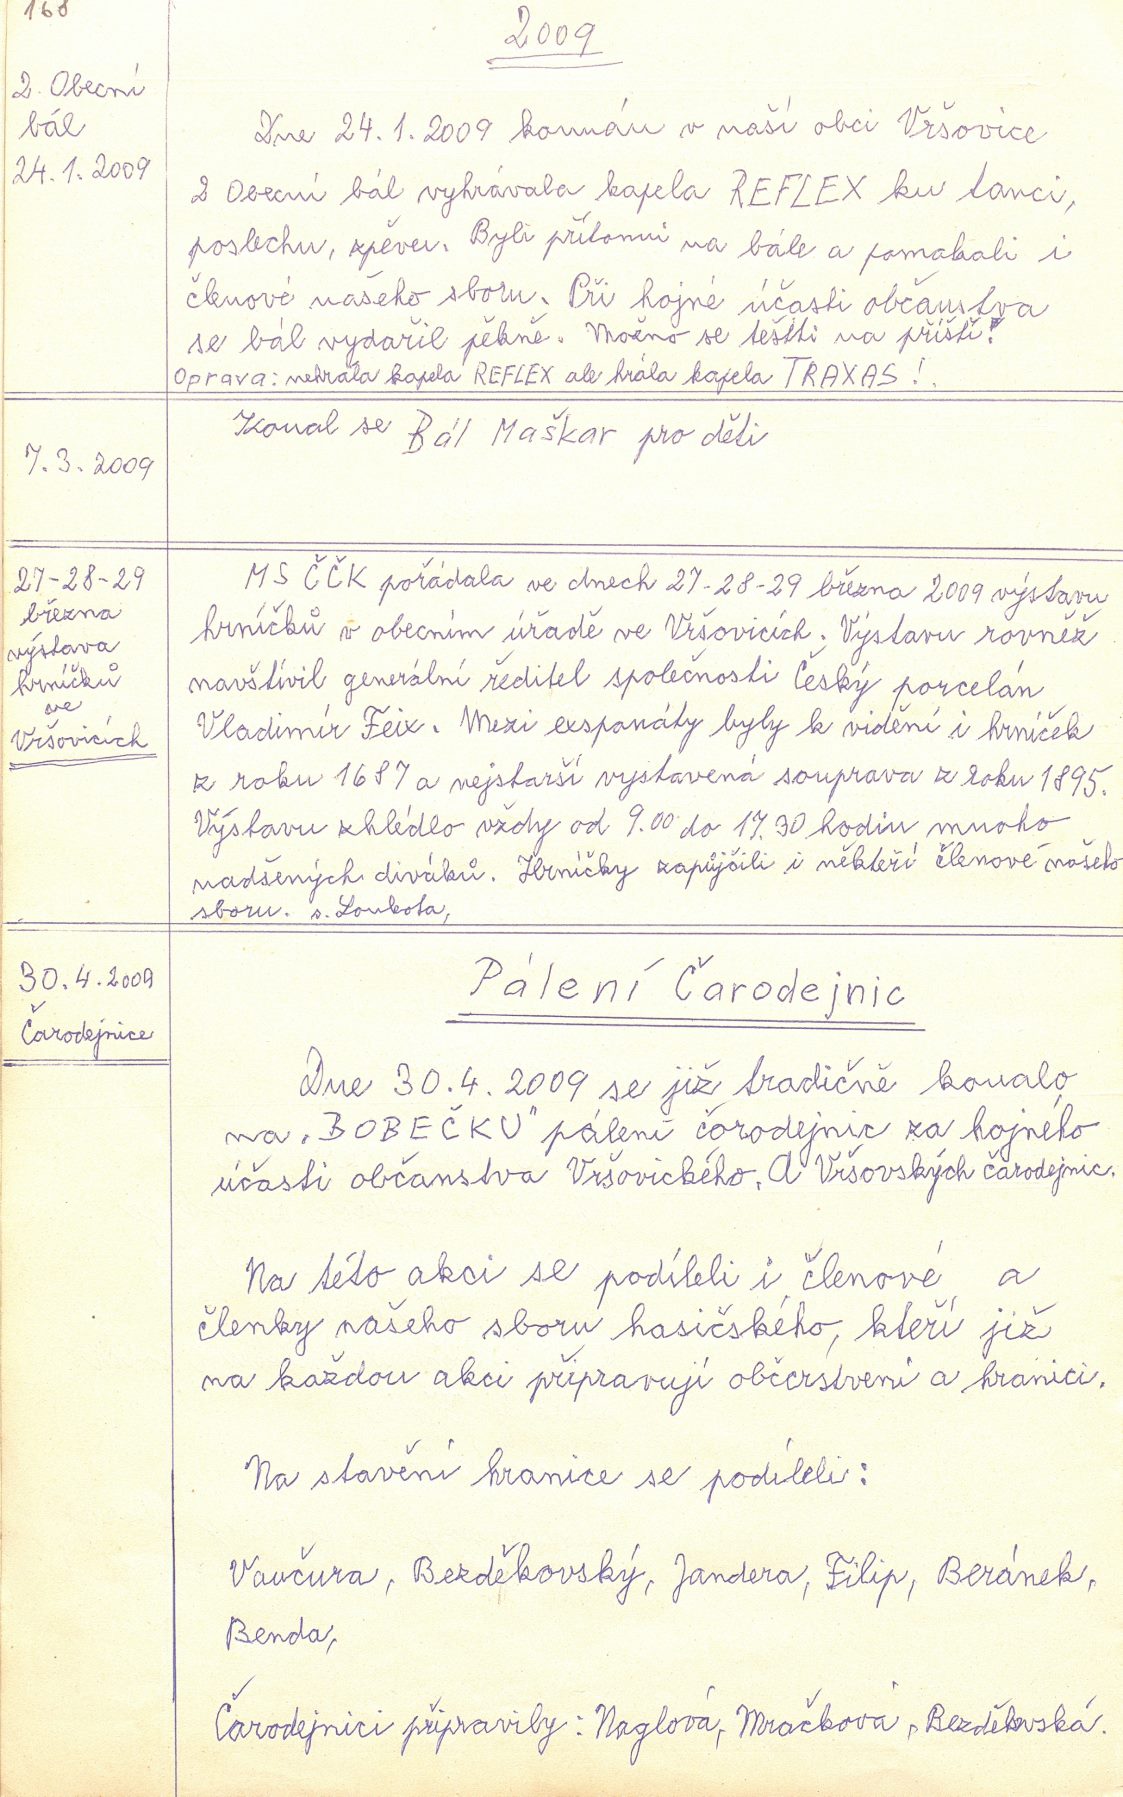 168
2009
2. Obecní
bál
24.1.2009
Dne 24.1.2009 konnán v naší obci Vršovice
2 Obecní bál vyhrávala kapela REFLEX ku tanci,
poslechu, zpěvu. Byli přítomni na bále a pomahali i
členové našeho sboru. Při hojné účasti občanstva
se bál vydařil pěkně. Možno se těšiti na příští!
Oprava: nehrála kapela REFLEX ale hrála kapela TRAXAS!.
7.3.2009
Konal se Bál Maškar pro děti
27-28-29
března
výstava
hrníčků
ve
Vršovicích
MS ČČK pořádala ve dnech 27-28-29 března 2009 výstavu
hrníčků v obecním úřadě ve Vršovicích. Výstavu rovněž
navštívil generální ředitel společnosti Český porcelán
Vladimír Feix. Mezi exspanáty byly k vidění i hrníček
z roku 1687 a nejstarší vystavená souprava z roku 1895.
Výstavu zhlédlo vždy od 9.00 do 17.30 hodin mnoho
nadšených diváků. Hrníčky zapůjčili i někteří členové našeho
sboru. s. Loukota,
30.4.2009
Čarodejnice
Pálení Čarodejnic
Dne 30.4.2009 se již tradičně konalo
na "BOBEČKU" pálení čarodejnic za hojného
účasti občanstva Vršovického. A Vršovských čarodejnic.
Na této akci se podíleli i členové a
členky našeho sboru hasičského, kteří již
na každou akci připravují občerstvení a hranici.
Na stavění hranice se podíleli:
Vančura, Bezděkovský, Jandera, Filip, Beránek,
Benda,
Čarodejnici připravily: Naglová, Mračková, Bezděkovská.